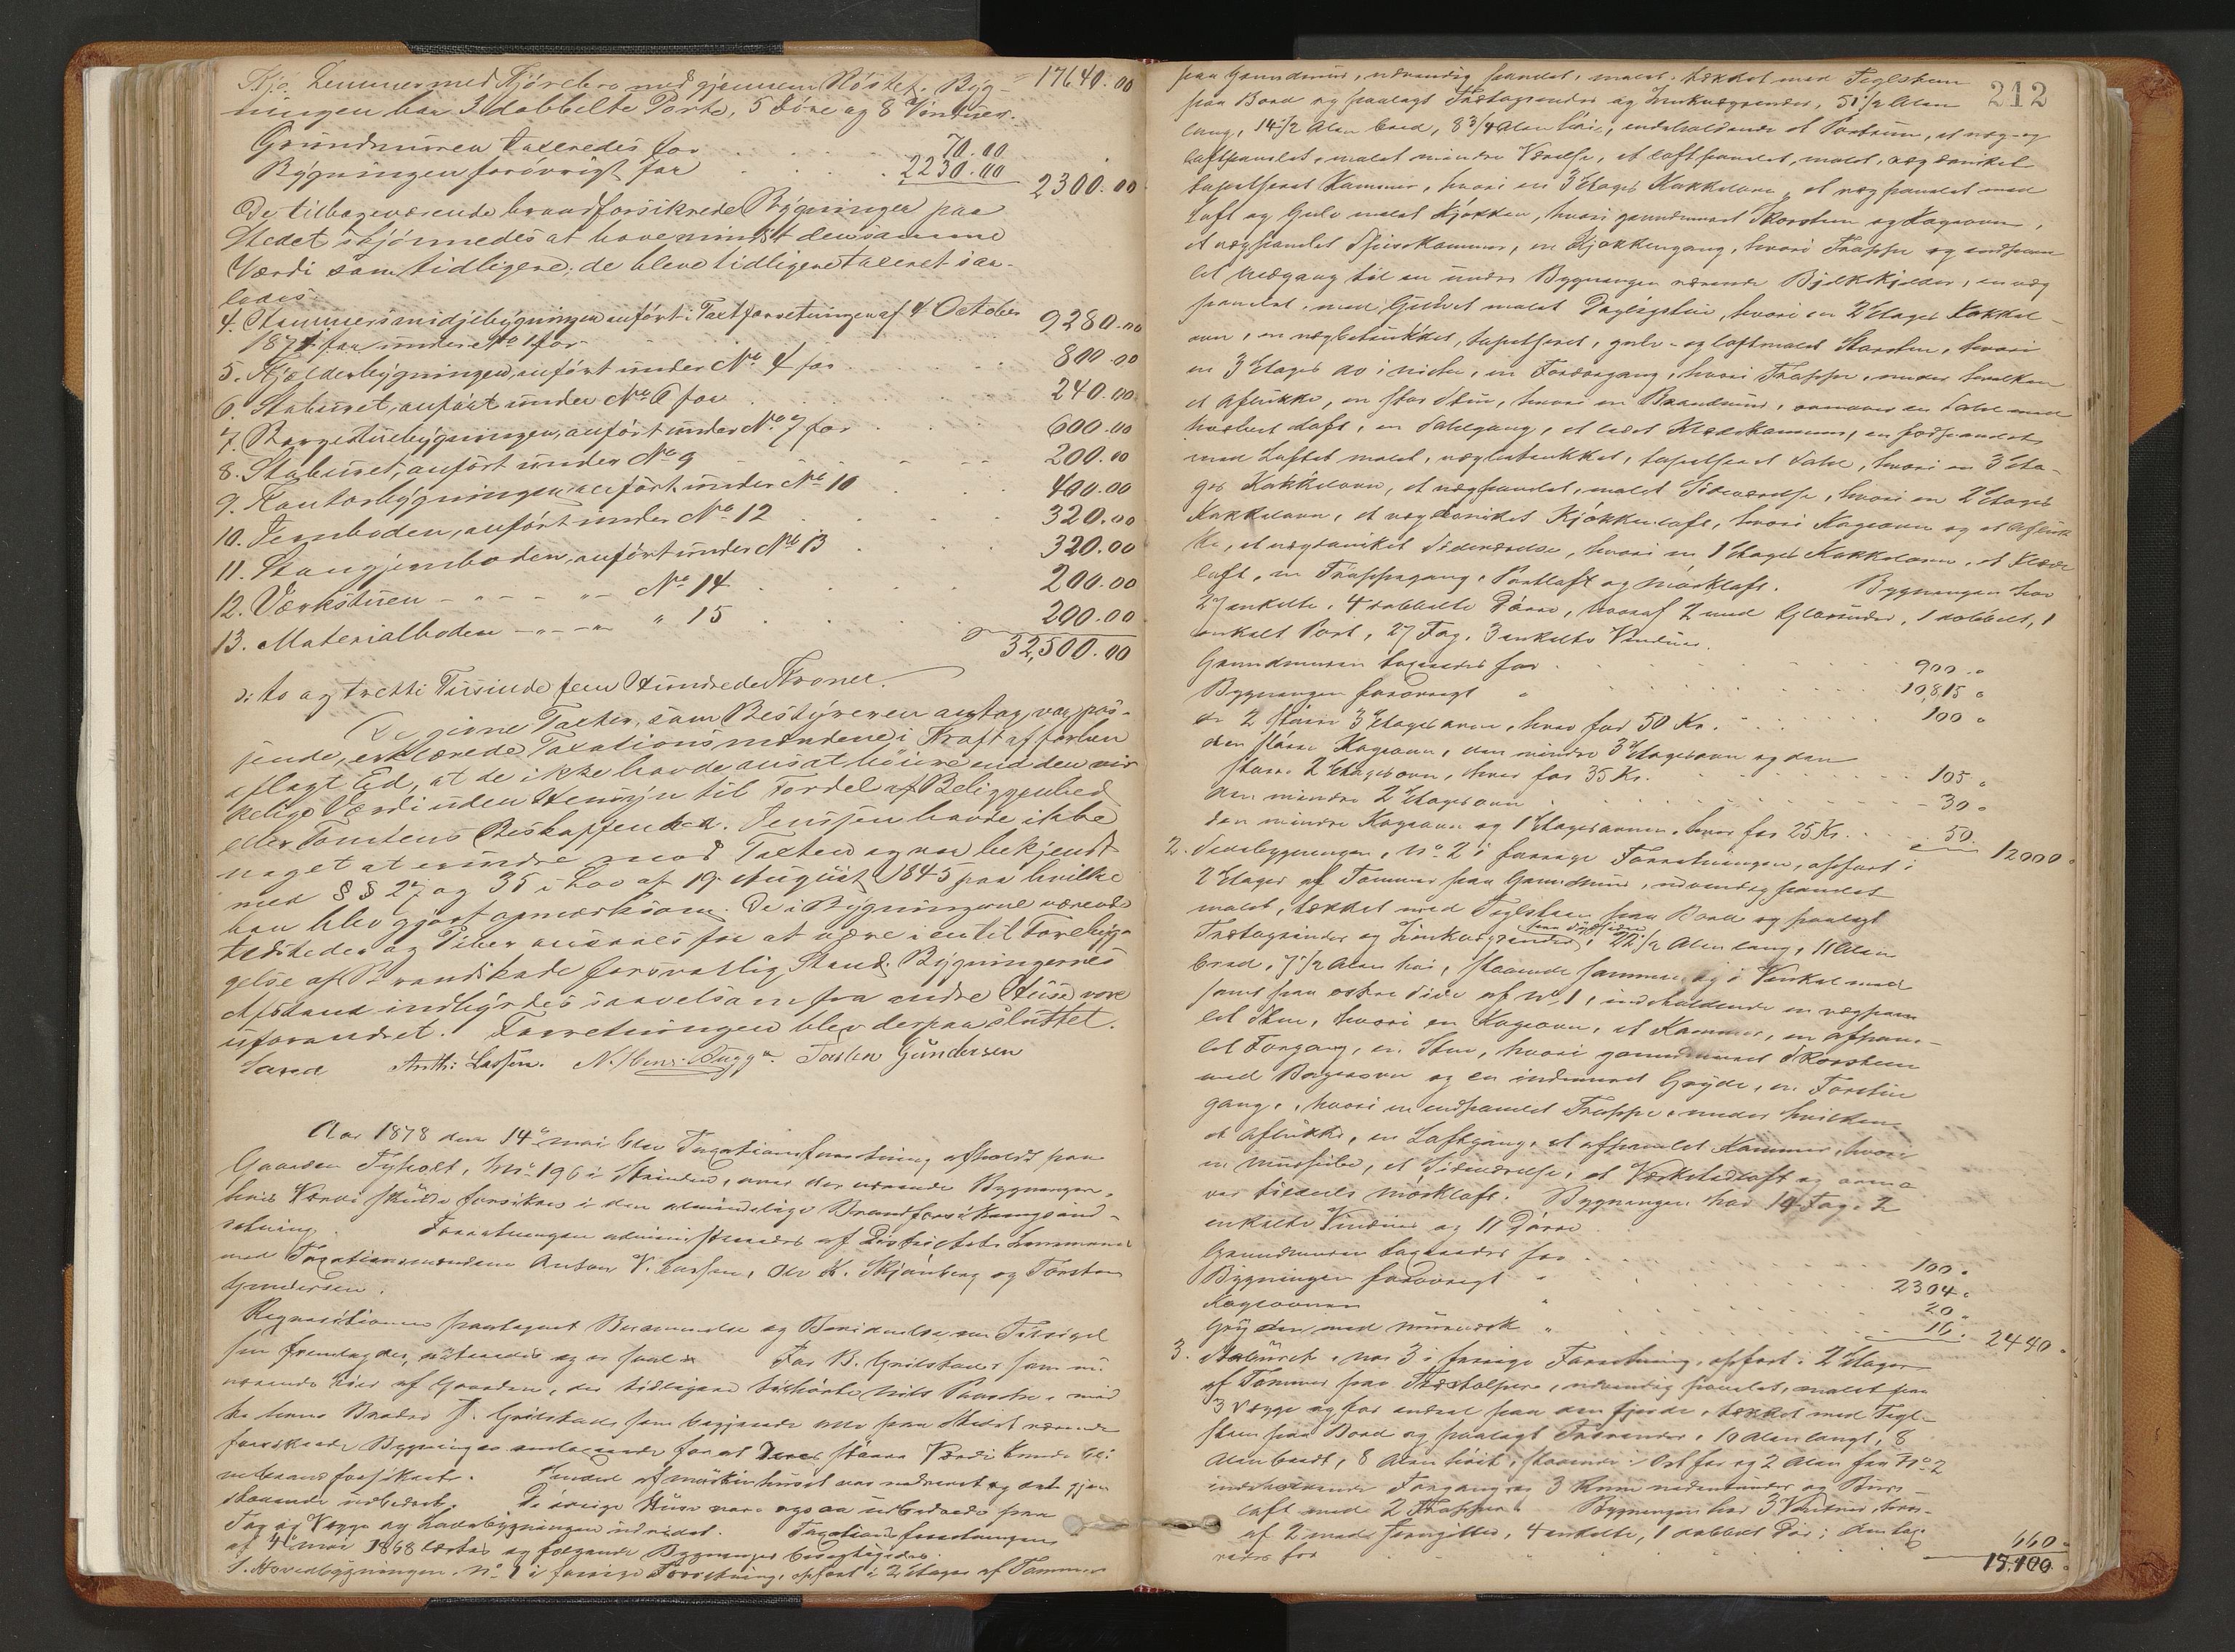 Skjø, Lemmer med Kjørebro med gjennem Röstet. Byg- 17640.00
ningen har 3 dobbelte Porte, 5 Døre og 8 Vinduer.
Grundmuren taxeredes for 70.00
Bygningen forøvrigt for 2230.00 2300.00
De tilbageværende brandforsikrede Bygninger paa
Stedet skjønnedes at have mindst den samme
Værdi som tidligere; de bleve tidligere taxeret saa-
ledes:
4. Stammersmidjebygningen anført i Taxtforretningen af 4 October
1871 for under No 1 for 9280.00
5. Kjælderbygningen, anført under No 4 for 800.00
6. Staburet, anført under No 6 for 240.00
7. Borgestuebygningen, anført under No 7 for 600.00
8. Staburet, anført under No 9 200.00
9. Kontorbygningen anført under No 10 400.00
10. Jernboden, anført under No 12 320.00
11. Stangjernboden, anført under No 13 320.00
12. Værkstuen - " - - " - No 14 200.00
13. Materialboden - " - - " " 15 200.00
32,500.00
ɔ: to og tretti Tusinde fem Hundrede Kroner.
De givne Taxter, som Bestyreren antog var pas-
sende, erklærede Taxationsmændene i Kraft af forhen
aflagt Ed, at de ikke havde ansat høiere end den vir
kelige Værdi uden Hensyn til Fordel af Beliggenhed
eller Tomtens Beskaffenhed. Jenssen havde ikke
noget at erindre mod Taxten og var bekjendt
med §§ 27 og 35 i Lov af 19 August 1845 paa hvilke
han blev gjort opmærksom. De i Bygningerne værende
Ildsteder og Piber ansaaes for at være i en til Forebyg-
gelse af Brandskade forsvarlig Stand. Bygningernes
Afstand indbyrdes saavelsom fra andre Huse var
uforandret. Forretningen blev derpaa sluttet.
Anth: Lassen. N. Hens. Bugge. Torsten Gundersen
Aar 1878 den 14de mai blev Taxationsforretning afholdt paa
Gaarden Tyholt, No 196 i Strinden, over der værende Bygninger,
hvis Værdi skulde forsikres i den almindelige Brandforsikringsind-
retning. Forretningen administreredes af Districtets Lensmand
med Taxationsmændene Anton V. Lassen, Ole K. Skjånberg og Torsten
Gundersen.
Requisitionen paategnet Berammelse og
fremlagdes, For B. Grilstad som nu
værende Eier af Gaarden, der tidligere tilhørte
hans Broder J. Grilstad som begjærede alle paa Stedet værende
forsikrede Bygninger omtaxerede for at deres større Værdi kunde bli
brandforsikrede. var nedrevet og det gjen
staaende udbedret. De øvrige Huse vare ogsaa udbedrede paa
Tag og Vægge og Ladebygningen udvidet. Taxationsforretningen
af 4de mai 1868 læstes og følgende Bygninger besigtigedes:
1. Hovedbygningen, No 1 i forrige Forretning, opført i 2 Etager af Tømmer
212
paa Grundmur, udvendig panelet, malet, tækket med Teglsten
paa Bord og paalagt Trætagrender og Zinknedrender, 51 1/2 Alen
lang, 14 1/2 Alen bred, 8 3/4 Alen høi, indeholdende et Forrum, et væg- og
loftpanelet, malet mindre Værelse, et loftpanelet, malet,
tapetseret Kammer, hvori en 3 Etages Kakkelovn, et vægpanelet med
Loft og Gulv malet Kjøkken, hvori grundmuret Skorsten og Kogeovn,
et vægpanelet Spisekammer, en Kjøkkengang, hvori Trappe og indpane
let Nedgang til en under Bygningen værende Bjelkekjelder, en væg
panelet, med Gulvet malet Dagligstue, hvori en 2 Etages Kakkel-
ovn, en vægbetrukket, tapetseret, gulv- og loftmalet Storstue, hvori
en 3 Etages do i niche, en Fordørgang, hvori Trappe, under hvilken
et Aflukke, en stor Stue, hvori en Brandmur,
hvælvet Loft, en Salsgang, et lidet Klædekammer,
med Loftet malet, vægbetrukket, tapetseret Sal, hvori en 3 Eta-
ges Kakkelovn, et vægpanelet, malet Sideværelse, hvori en 2 Etages
Kakkelovn, et Kjøkkenloft, hvori Kogeovn og et Afluk
ke, et Sideværelse, hvori en 1 Etages Kakkelovn, et Klæde
loft, en Trappegang, Portloft og mørkloft. Bygningen har
27 enkelte, 4 dobbelte Døre, hvoraf 2 med Glasruder, 1 dobbelt, 1
enkelt Port, 27 Fag, 3 enkelte Vinduer.
Grundmuren taxeredes for 900 "
Bygningen forøvrigt " 10,815 "
de 2 større 3 Etagesovne, hver for 50 Kr. 100 "
den større Kogeovn, den mindre 3 Etagesovn og den
større 2 Etagesovn, hver for 35 Kr. 105 "
den mindre 2 Etagesovn 30 "
den mindre Kogeovn og 1 Etagesovnen, hver for 25 Kr. 50 " 12000 "
2. Sidebygningen, No 2 i forrige Forretningen, opført i
2 Etager af Tømmer paa Grundmur, udvendig panelet
malet, tækket med Teglsten paa Bord og paalagt
Trætagrender og Zinknedrender, 22 1/2 Alen lang, 11 Alen
bred, 7 1/2 Alen høi, staaende sammen og i Vinkel med
samt paa østre Side af No 1, indeholdende en vægpane
let Stue, hvori en Kogeovn, et Kammer, en afpane-
let Forgang, en Stue, hvori grundmuret Skorsten
med Bagerovn og en indmuret Gryde, en Forstue
gang, hvori en indpanelet Trappe, under hvilken
et Aflukke, en Loftgang, et afpanelet Kammer, hvori
en et Sideværelse, et Værkstedloft og oven
over tildels mørkloft. Bygningen har 14 Fag, 2
enkelte Vinduer og 11 Døre.
Grundmuren taxeredes for 100 "
Bygningen forøvrigt " 2304 "
Kogeovnen " 20 "
Gryden med murverk " 16 " 2440 "
3. Staburet, No 3 i forrige Forretning, opført i 2 Etager
af Tømmer paa Træstolper, udvendig panelet, malet paa
3 Vægge og for endeel paa den fjerde, tækket med Tegl-
sten paa Bord og paalagt Trærender, 10 Alen langt, 8
Alen bredt, 8 Alen høit, staaende i Øst for og 2 Alen fra No 2
indeholdende Forgang og 3 Rum nedenunder og Burs-
loft med 2 Trapper. Bygningen har 3 Vinduer, hvor-
af 2 med Jerngitter, 4 enkelte, 1 dobbelt Dør; den tax-
eredes for 660 "
15,100 "